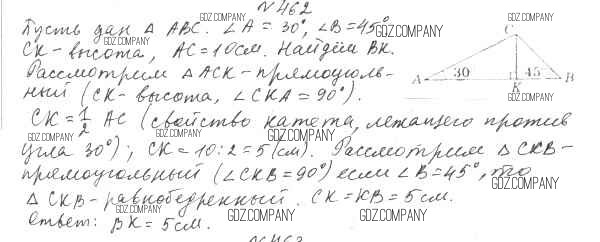 №462
Пусть дан △ ABC. ∠A = 30°, ∠B = 45°
CK - высота, AC = 10см. Найдём BK.
Рассмотрим △ACK - прямоуголь-
ный (CK - высота, ∠CKA = 90°).
CK = 1/2 AC (свойство катета, лежащего против
угла 30°); CK = 10:2 = 5 (см). Рассмотрим △CKB -
прямоугольный (∠CKB = 90°) если ∠B = 45°, то
△CKB - равнобедренный. CK = KB = 5см.
Ответ: BK = 5см.
C
A 30 45 B
K
GDZ.COMPANY
GDZ.COMPANY
GDZ.COMPANY
GDZ.COMPANY
GDZ.COMPANY
GDZ.COMPANY
GDZ.COMPANY
GDZ.COMPANY
GDZ.COMPANY
GDZ.COMPANY
GDZ.COMPANY
GDZ.COMPANY
GDZ.COMPANY